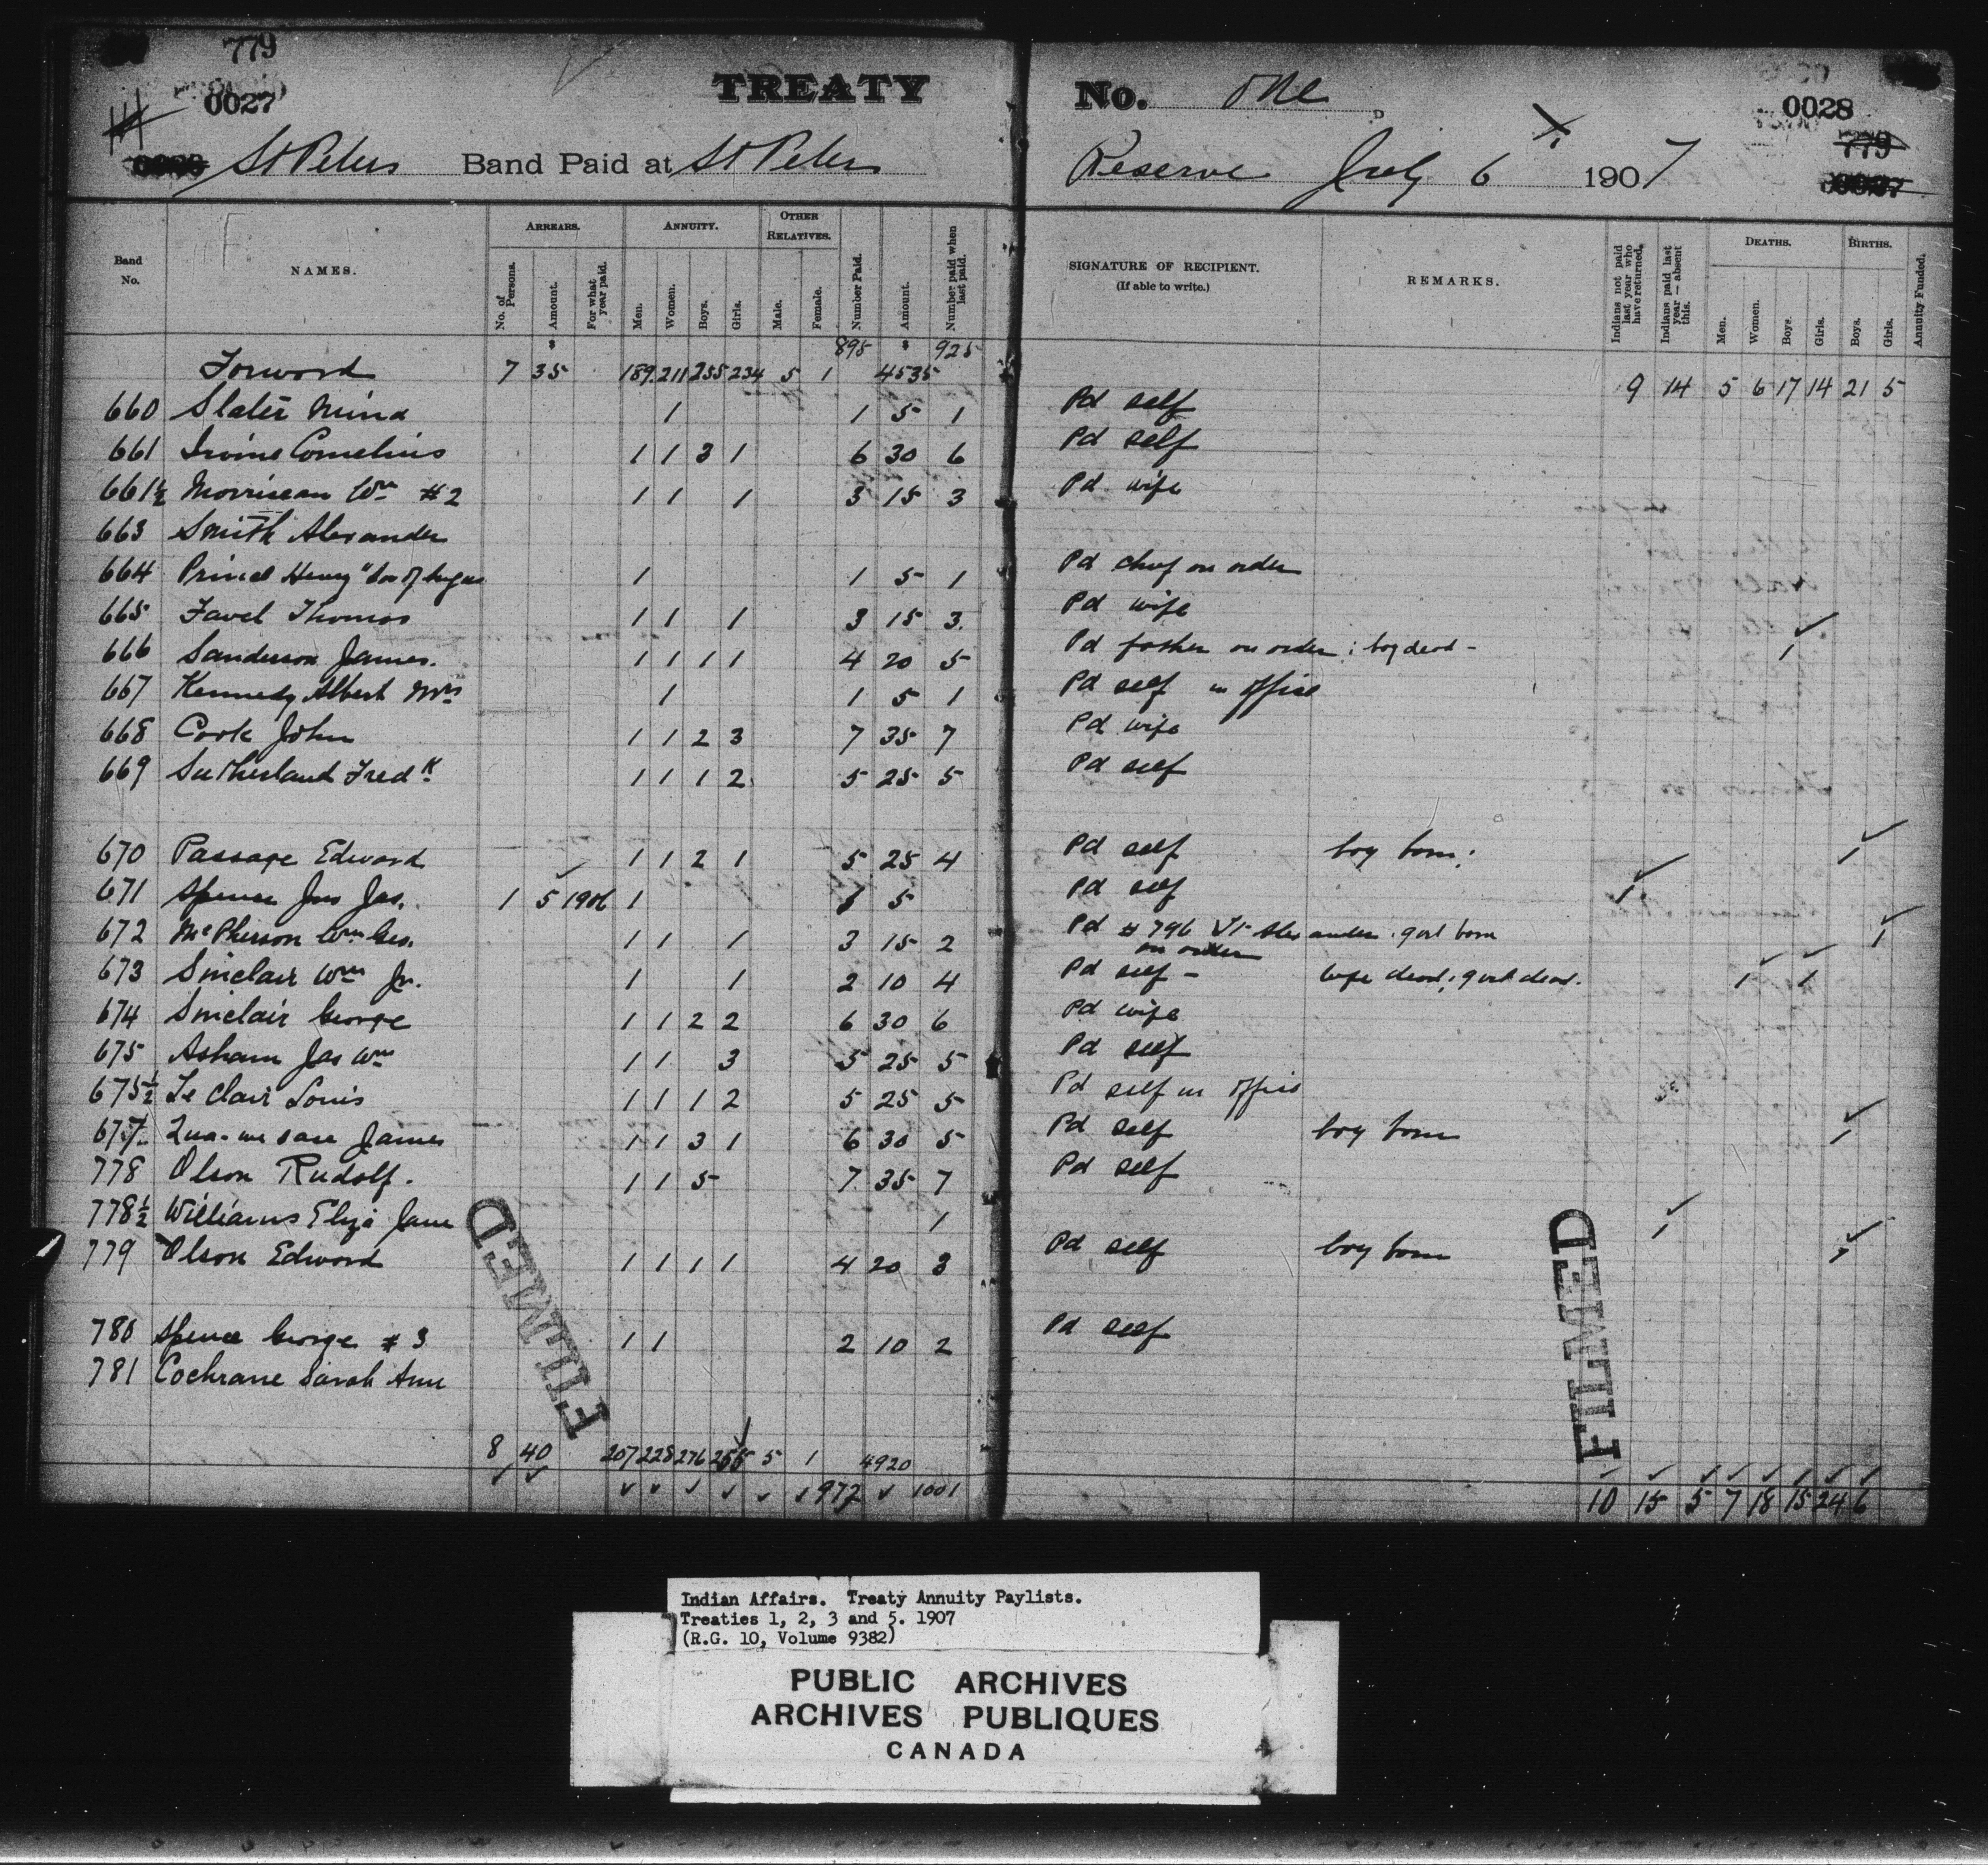 779
0027
TREATY No. One
0028
779
St Peters Band Paid at St Peters Reserve July 6th 1907
Band No. NAMES. ARREARS. No. of Persons. Amount. For what year paid. ANNUITY. Men. Women. Boys. Girls. OTHER RELATIVES. Male. Female. Number Paid. Amount. Number paid when last paid. SIGNATURE OF RECIPIENT. (If able to write.) REMARKS. Indians not paid last year who have returned. Indians paid last year — absent this. DEATHS. Men. Women. Boys. Girls. BIRTHS. Boys. Girls. Annuity Funded.
Forword 7 35 189 211 255 234 5 1 895 4535 925 9 14 5 6 17 14 21 5
660 Slater Mina 1 1 5 1 Pd self
661 Irvine Cornelius 1 1 3 1 6 30 6 Pd self
661½ Morriseau Wm #2 1 1 1 3 15 3 Pd wife
663 Smith Alexander
664 Prince Henry "Son of 1 1 5 1 Pd chief on order
665 Favel Thomas 1 1 1 3 15 3 Pd wife
666 Sanderson James. 1 1 1 1 4 20 5 Pd father on order ; boy dead - 1
667 Kennedy Albert Mrs 1 1 5 1 Pd self in office
668 Cook John 1 1 2 3 7 35 7 Pd wife
669 Sutherland Fredk 1 1 1 2 5 25 5 Pd self
670 Passage Edward 1 1 2 1 5 25 4 Pd self boy born; 1
671 Spence Jas. 1 5 1906 1 1 5 Pd self 1
672 McPherson Wm Geo. 1 1 1 3 15 2 Pd # 796 St. Alexander . girl born 1
on order
673 Sinclair Wm Jr. 1 1 2 10 4 Pd self - wife dead; girl dead. 1 1
674 Sinclair George 1 1 2 2 6 30 6 Pd wife
675 Asham Jas Wm 1 1 3 5 25 5 Pd self
675½ Le Clair Louis 1 1 1 2 5 25 5 Pd self in office
677 James 1 1 3 1 6 30 5 Pd self boy born 1
778 Olson Rudolf. 1 1 5 7 35 7 Pd self
778½ Williams Eliza Jane 1 1
779 Olson Edward 1 1 1 1 4 20 3 Pd self boy born 1
780 Spence George # 3 1 1 2 10 2 Pd self
781 Cochrane Sarah Ann
FILMED
FILMED
8 40 207 228 276 255 5 1 4920
972 1001 10 15 5 7 18 15 24 6
Indian Affairs. Treaty Annuity Paylists.
Treaties 1, 2, 3 and 5. 1907
(R.G. 10, Volume 9382)
PUBLIC ARCHIVES
ARCHIVES PUBLIQUES
CANADA